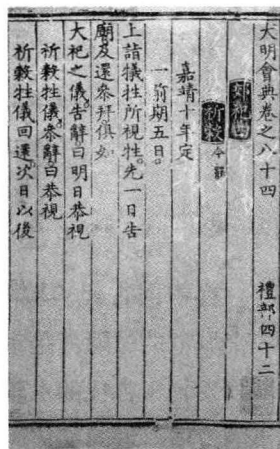 大明會典卷之八十四 禮部四十二
郊祀四
祈穀 今罷
嘉靖十年定
一前期五日
上詣犧牲所視牲先一日告
廟及還參拜俱如
大祀之儀告辭曰明日恭視
祈穀牲儀參辭曰恭視
祈穀牲儀回還次日以後